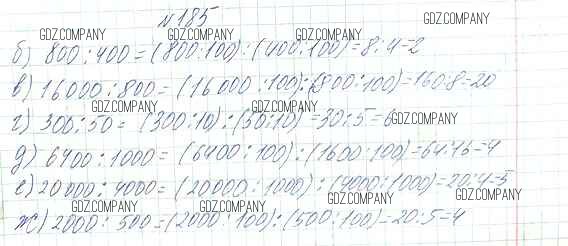 №185
GDZ.COMPANY
GDZ.COMPANY GDZ.COMPANY GDZ.COMPANY
б) 800:400=(800:100):(400:100)=8:4=2
в) 16000:800=(16000:100):(800:100)=160:8=20
GDZ.COMPANY GDZ.COMPANY GDZ.COMPANY
GDZ.COMPANY GDZ.COMPANY GDZ.COMPANY
г) 300:50=(300:10):(50:10)=30:5=6
д) 6400:1000=(6400:100):(1600:100)=64:16=4
GDZ.COMPANY GDZ.COMPANY GDZ.COMPANY
е) 20000:4000=(20000:1000):(4000:1000)=20:4=5
GDZ.COMPANY GDZ.COMPANY GDZ.COMPANY
ж) 2000:500=(2000:100):(500:100)=20:5=4